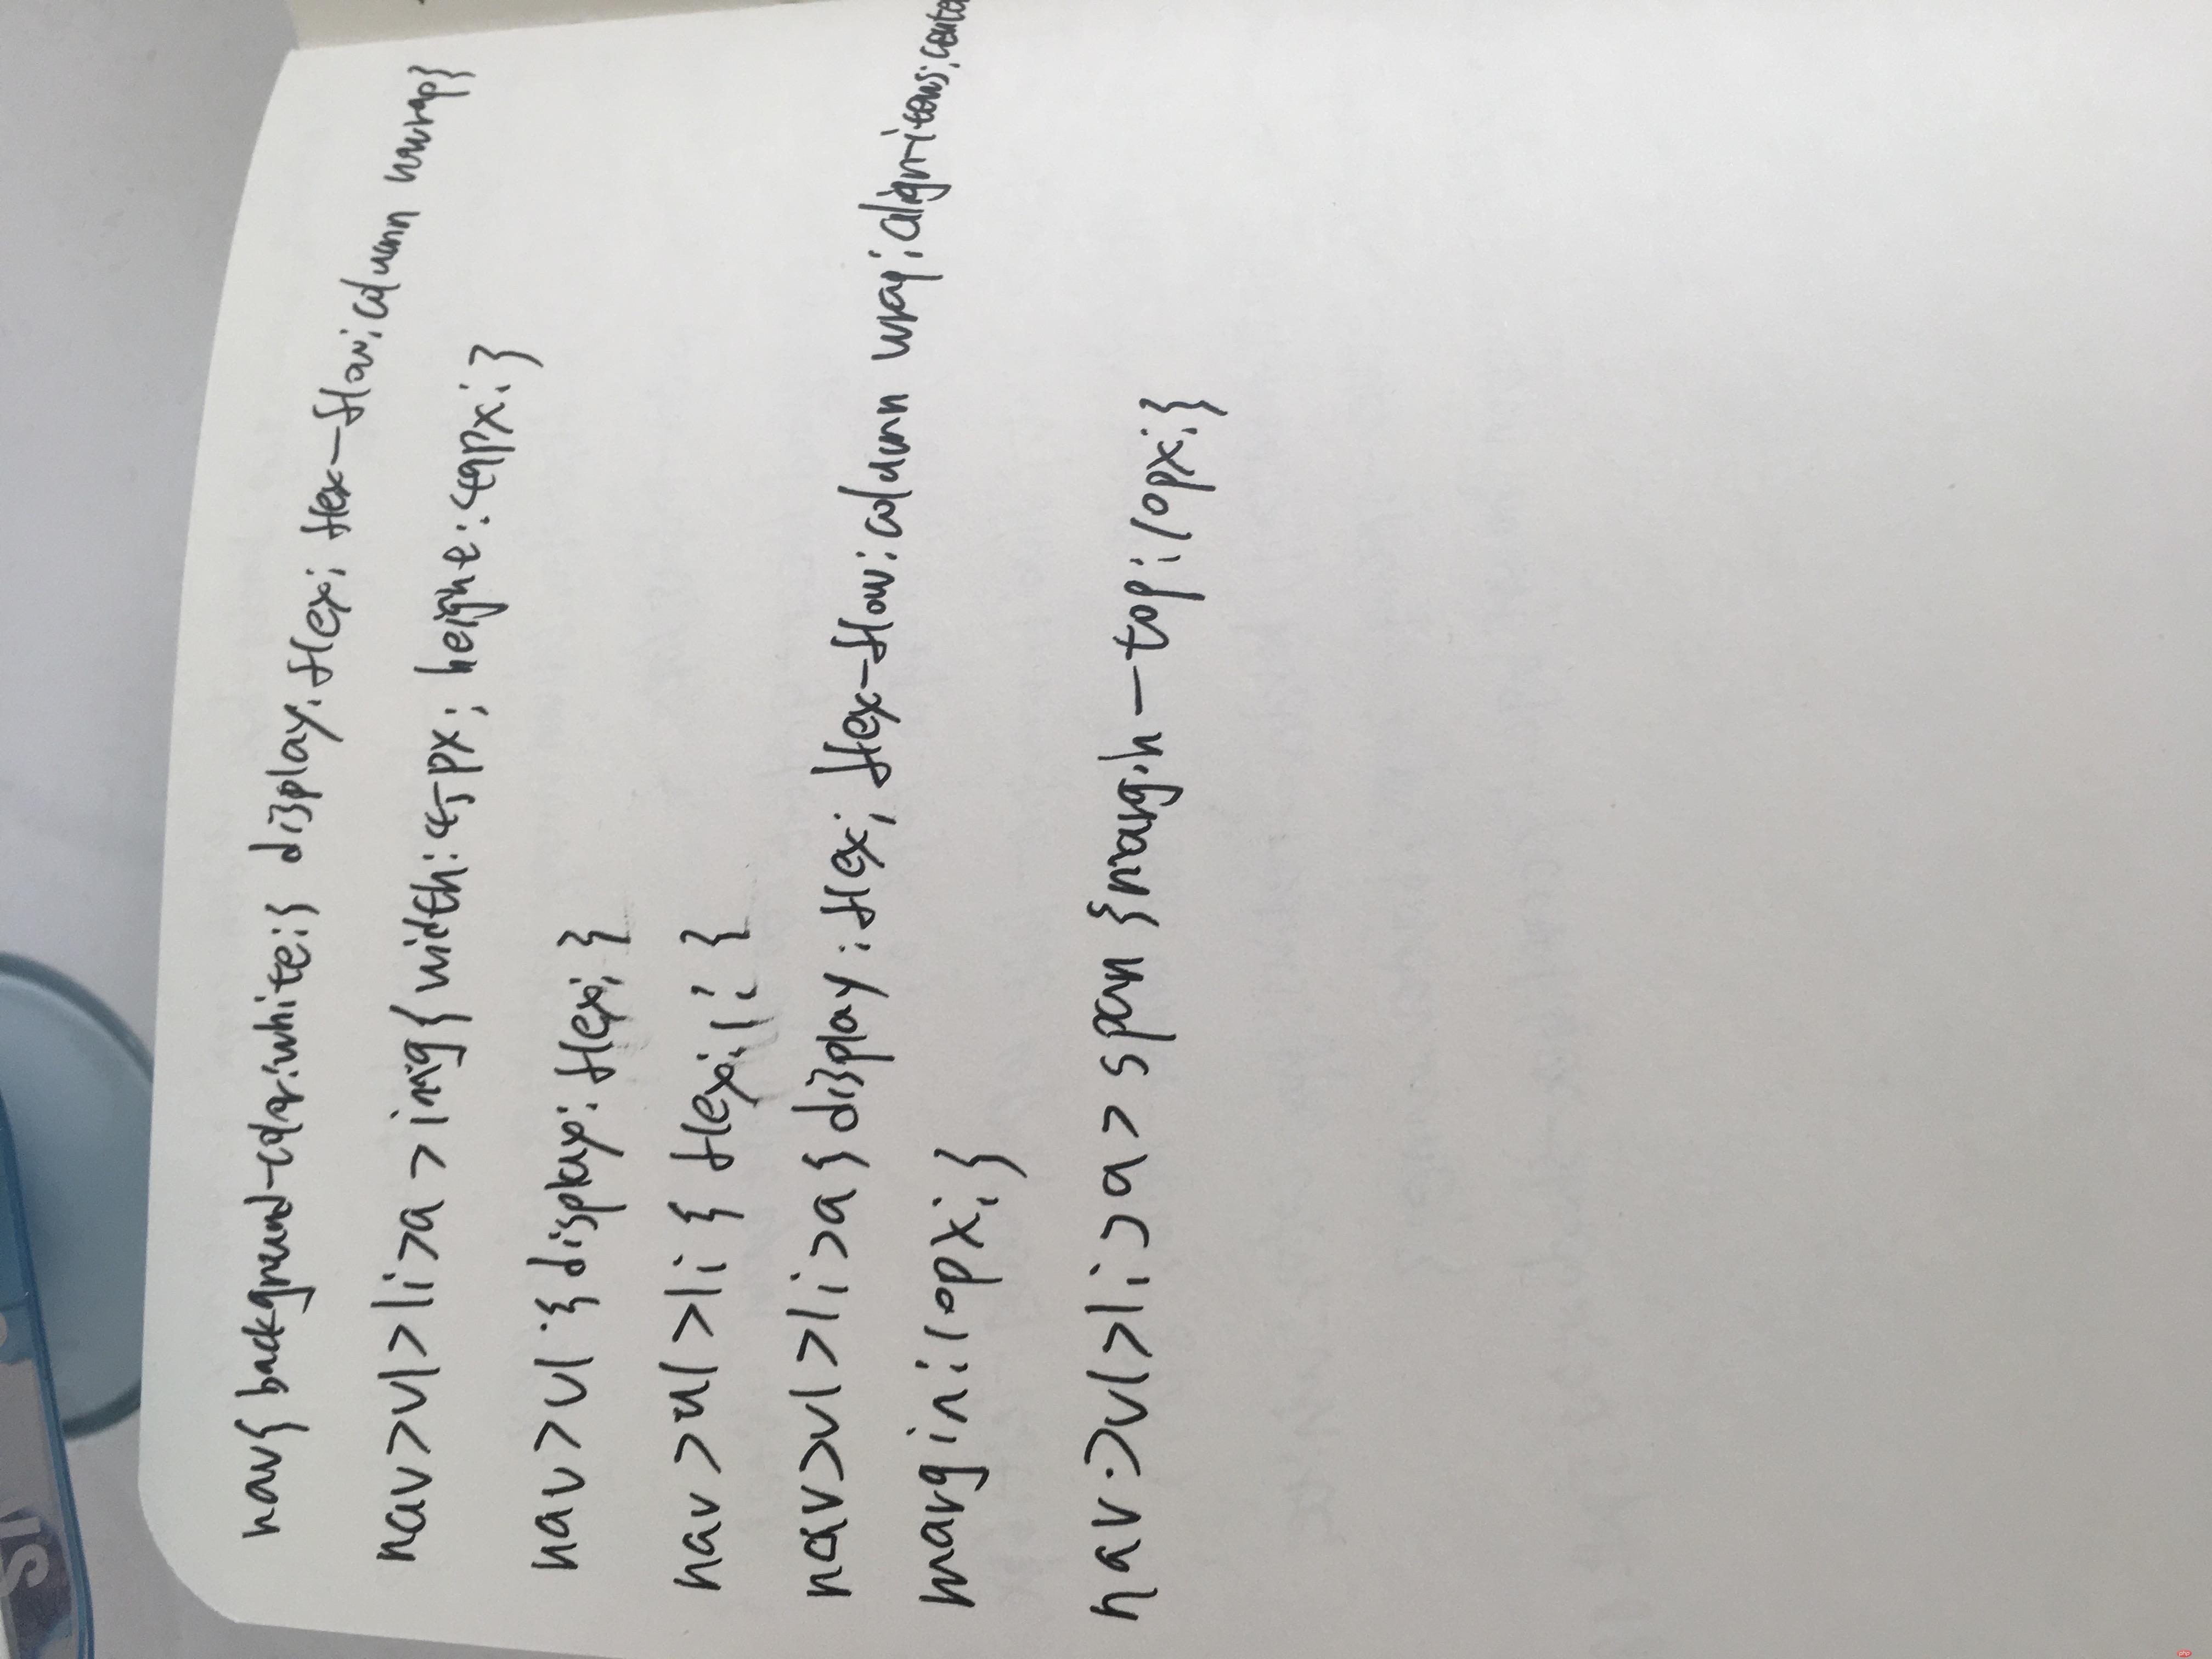 nav{background-color:white;} display:flex; flex-flow:column nowrap}
nav>ul>li>a>img{width:45px; height:45px;}
nav>ul{display:flex;}
nav>ul>li{flex:1;}
nav>ul>li>a{display:flex; flex-flow:column wrap;align-items:cente
margin:10px;}
nav>ul>li>a>span{margin-top:10px;}